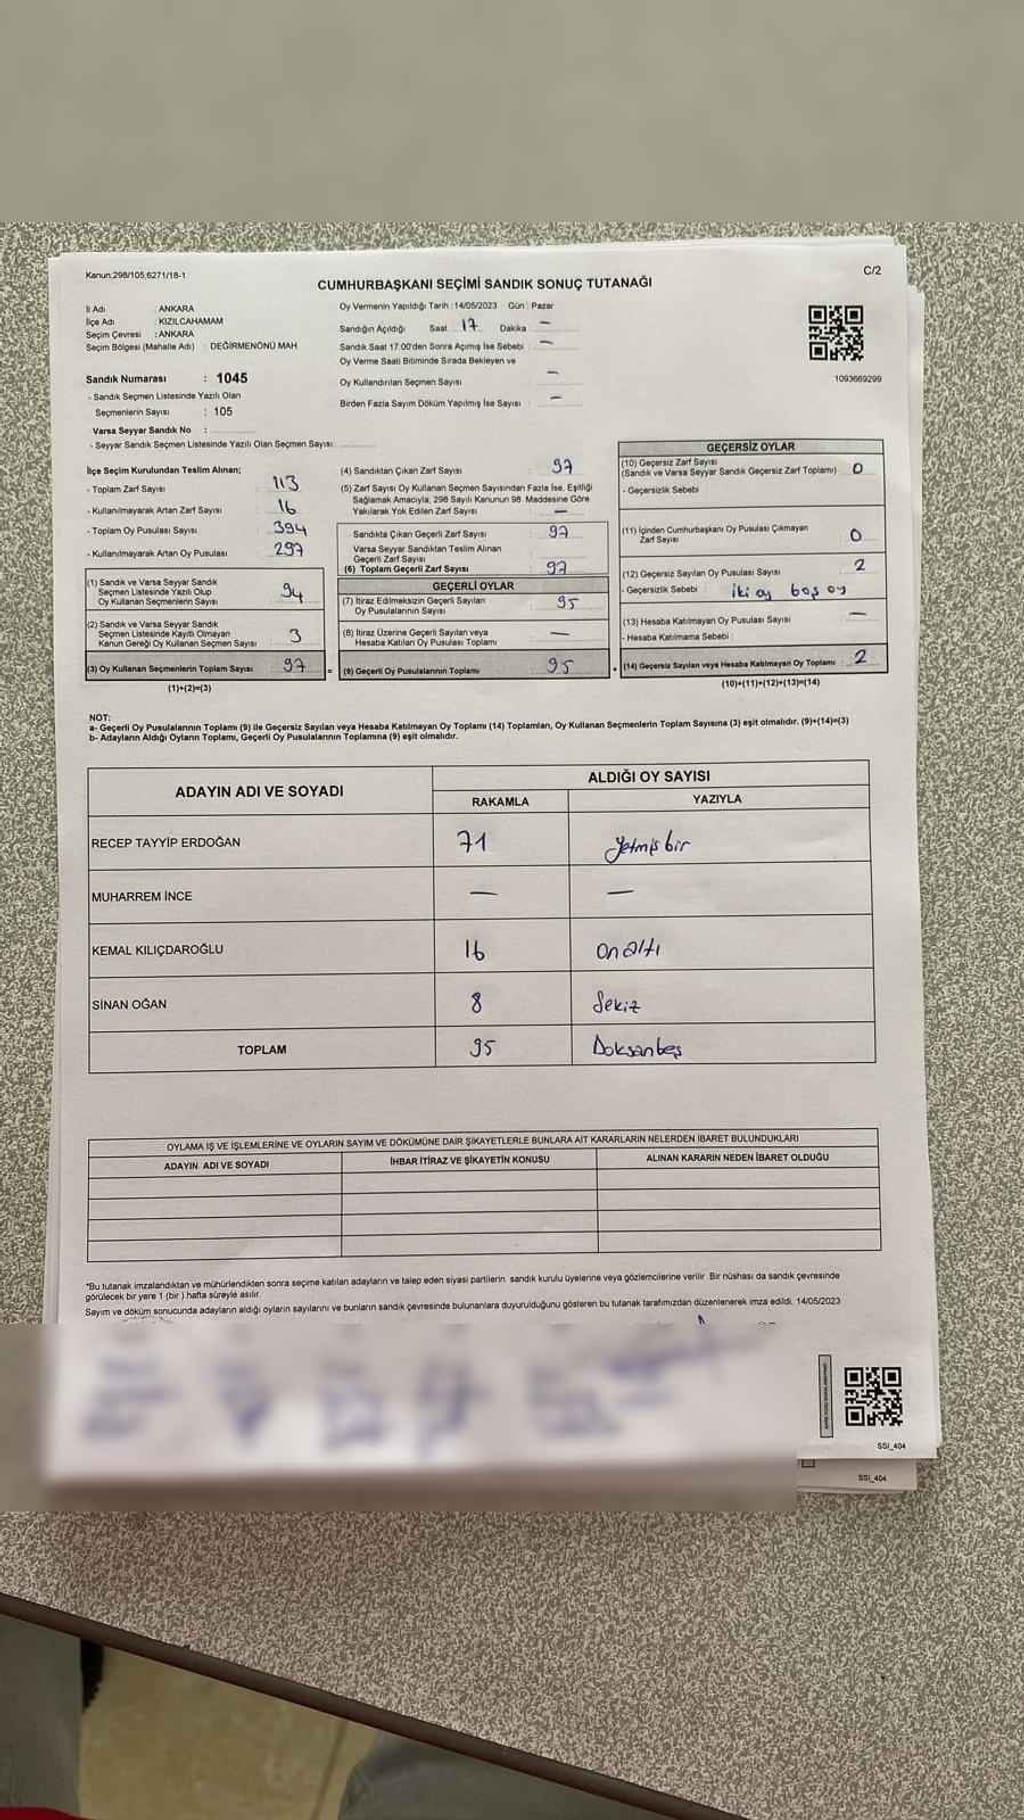 Kanun:298/105,6271/18-1
C/2
CUMHURBAŞKANI SEÇİMİ SANDIK SONUÇ TUTANAĞI
İl Adı : ANKARA
İlçe Adı : KIZILCAHAMAM
Seçim Çevresi : ANKARA
Seçim Bölgesi (Mahalle Adı) DEĞİRMENÖNÜ MAH
Sandık Numarası : 1045
- Sandık Seçmen Listesinde Yazılı Olan
Seçmenlerin Sayısı : 105
Varsa Seyyar Sandık No :
- Seyyar Sandık Seçmen Listesinde Yazılı Olan Seçmen Sayısı:
Oy Vermenin Yapıldığı Tarih : 14/05/2023 Gün : Pazar
Sandığın Açıldığı Saat 17 Dakika —
Sandık Saat 17.00'den Sonra Açımış İse Sebebi —
Oy Verme Saati Bitiminde Sırada Bekleyen ve
Oy Kullandırılan Seçmen Sayısı —
Birden Fazla Sayım Döküm Yapılmış İse Sayısı —
1093669299
İlçe Seçim Kurulundan Teslim Alınan;
- Toplam Zarf Sayısı 113
- Kullanılmayarak Artan Zarf Sayısı 16
- Toplam Oy Pusulası Sayısı 394
- Kullanılmayarak Artan Oy Pusulası 297
(1) Sandık ve Varsa Seyyar Sandık
Seçmen Listesinde Yazılı Olup
Oy Kullanan Seçmenlerin Sayısı 94
(2) Sandık ve Varsa Seyyar Sandık
Seçmen Listesinde Kayıtlı Olmayan
Kanun Gereği Oy Kullanan Seçmen Sayısı 3
(3) Oy Kullanan Seçmenlerin Toplam Sayısı 97 =
(1)+(2)=(3)
(4) Sandıktan Çıkan Zarf Sayısı 97
(5) Zarf Sayısı Oy Kullanan Seçmen Sayısından Fazla İse, Eşitliği
Sağlamak Amacıyla, 298 Sayılı Kanunun 98. Maddesine Göre
Yakılarak Yok Edilen Zarf Sayısı —
Sandıkta Çıkan Geçerli Zarf Sayısı 97
Varsa Seyyar Sandıktan Teslim Alınan
Geçerli Zarf Sayısı
(6) Toplam Geçerli Zarf Sayısı 97
GEÇERLİ OYLAR
(7) İtiraz Edilmeksizin Geçerli Sayılan
Oy Pusulalarının Sayısı 95
(8) İtiraz Üzerine Geçerli Sayılan veya
Hesaba Katılan Oy Pusulası Toplamı —
(9) Geçerli Oy Pusulalarının Toplamı 95 +
GEÇERSİZ OYLAR
(10) Geçersiz Zarf Sayısı
(Sandık ve Varsa Seyyar Sandık Geçersiz Zarf Toplamı) 0
- Geçersizlik Sebebi
(11) İçinden Cumhurbaşkanı Oy Pusulası Çıkmayan
Zarf Sayısı 0
(12) Geçersiz Sayılan Oy Pusulası Sayısı 2
- Geçersizlik Sebebi iki oy boş oy
(13) Hesaba Katılmayan Oy Pusulası Sayısı —
- Hesaba Katılmama Sebebi
(14) Geçersiz Sayılan veya Hesaba Katılmayan Oy Toplamı 2
(10)+(11)+(12)+(13)=(14)
NOT:
a- Geçerli Oy Pusulalarının Toplamı (9) ile Geçersiz Sayılan veya Hesaba Katılmayan Oy Toplamı (14) Toplamları, Oy Kullanan Seçmenlerin Toplam Sayısına (3) eşit olmalıdır. (9)+(14)=(3)
b- Adayların Aldığı Oyların Toplamı, Geçerli Oy Pusulalarının Toplamına (9) eşit olmalıdır.
ADAYIN ADI VE SOYADI
ALDIĞI OY SAYISI
RAKAMLA YAZIYLA
RECEP TAYYİP ERDOĞAN 71 yetmişbir
MUHARREM İNCE — —
KEMAL KILIÇDAROĞLU 16 onaltı
SİNAN OĞAN 8 Sekiz
TOPLAM 95 Doksanbeş
OYLAMA İŞ VE İŞLEMLERİNE VE OYLARIN SAYIM VE DÖKÜMÜNE DAİR ŞİKAYETLERLE BUNLARA AİT KARARLARIN NELERDEN İBARET BULUNDUKLARI
ADAYIN ADI VE SOYADI İHBAR İTİRAZ VE ŞİKAYETİN KONUSU ALINAN KARARIN NEDEN İBARET OLDUĞU
*Bu tutanak imzalandıktan ve mühürlendikten sonra seçime katılan adayların ve talep eden siyasi partilerin, sandık kurulu üyelerine veya gözlemcilerine verilir. Bir nüshası da sandık çevresinde
görülecek bir yere 1 (bir ) hafta süreyle asılır.
Sayım ve döküm sonucunda adayların aldığı oyların sayılarını ve bunların sandık çevresinde bulunanlara duyurulduğunu gösteren bu tutanak tarafımızdan düzenlenerek imza edildi. 14/05/2023
SSI_404
SSI_404